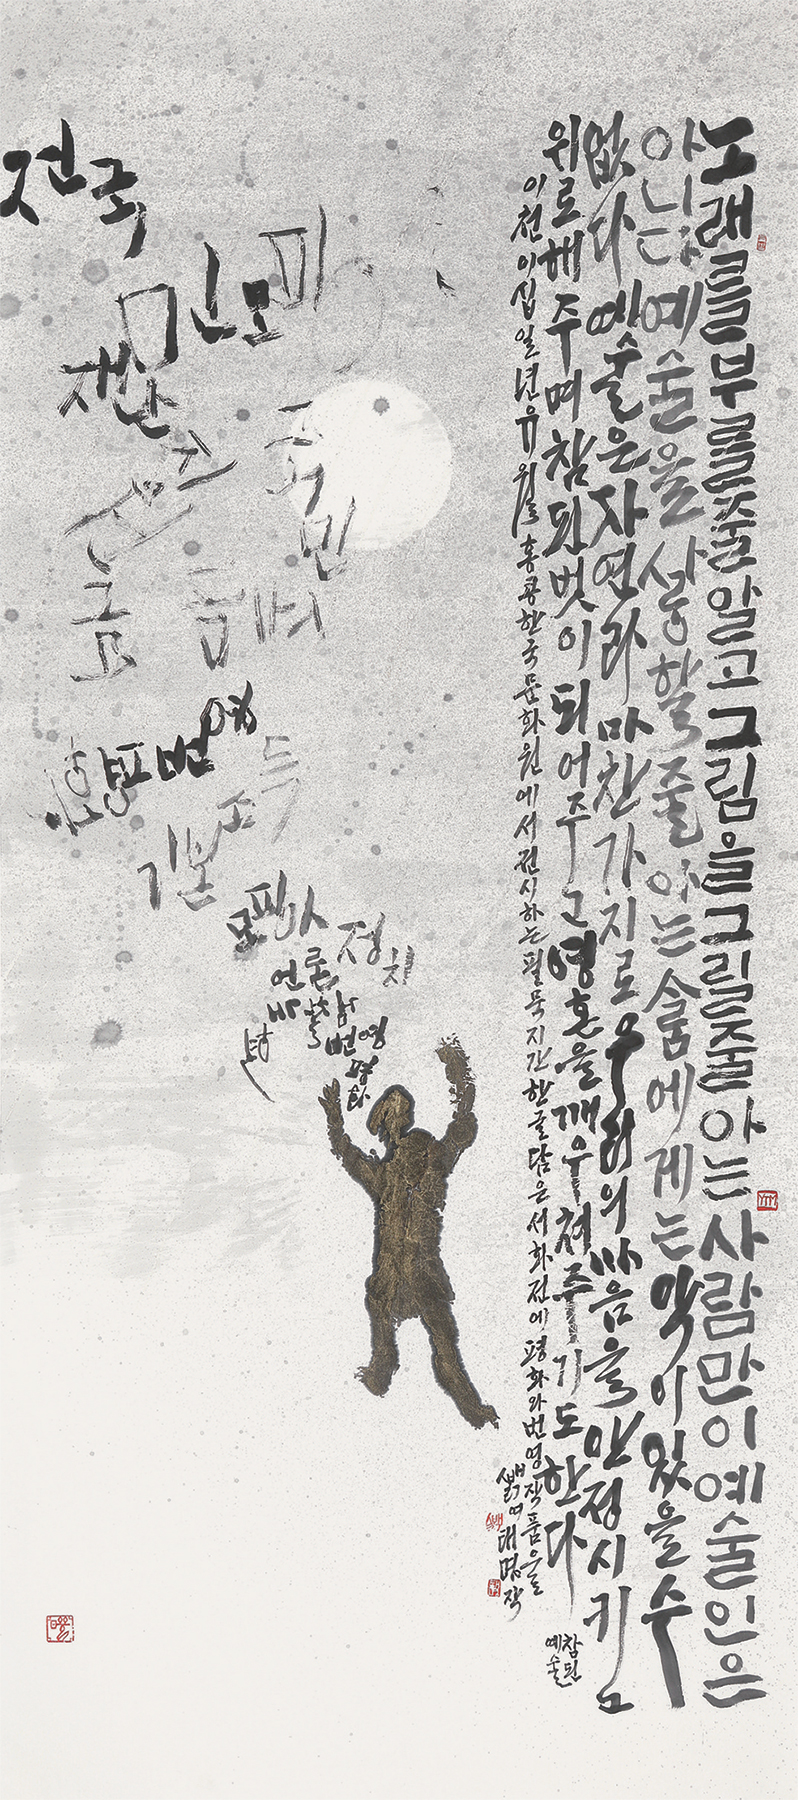 노래를부를줄알고그림을그릴줄아는사람만이예술인은
아니다예술을사랑할줄아는숨에게는막이있을수
없다예술은자연과마찬가지로우리의마음을안정시키고
위로해주며참된벗이되어주고영혼을깨우쳐주기도한다
이천이십일년유월홍콩한국문화원에서전시하는필묵지간한글담은서화전에평화와번영작품을
대명작
참된
예술
전국
민모
재난
국민
평화번영
기본소득
정치
언론
번영
평화